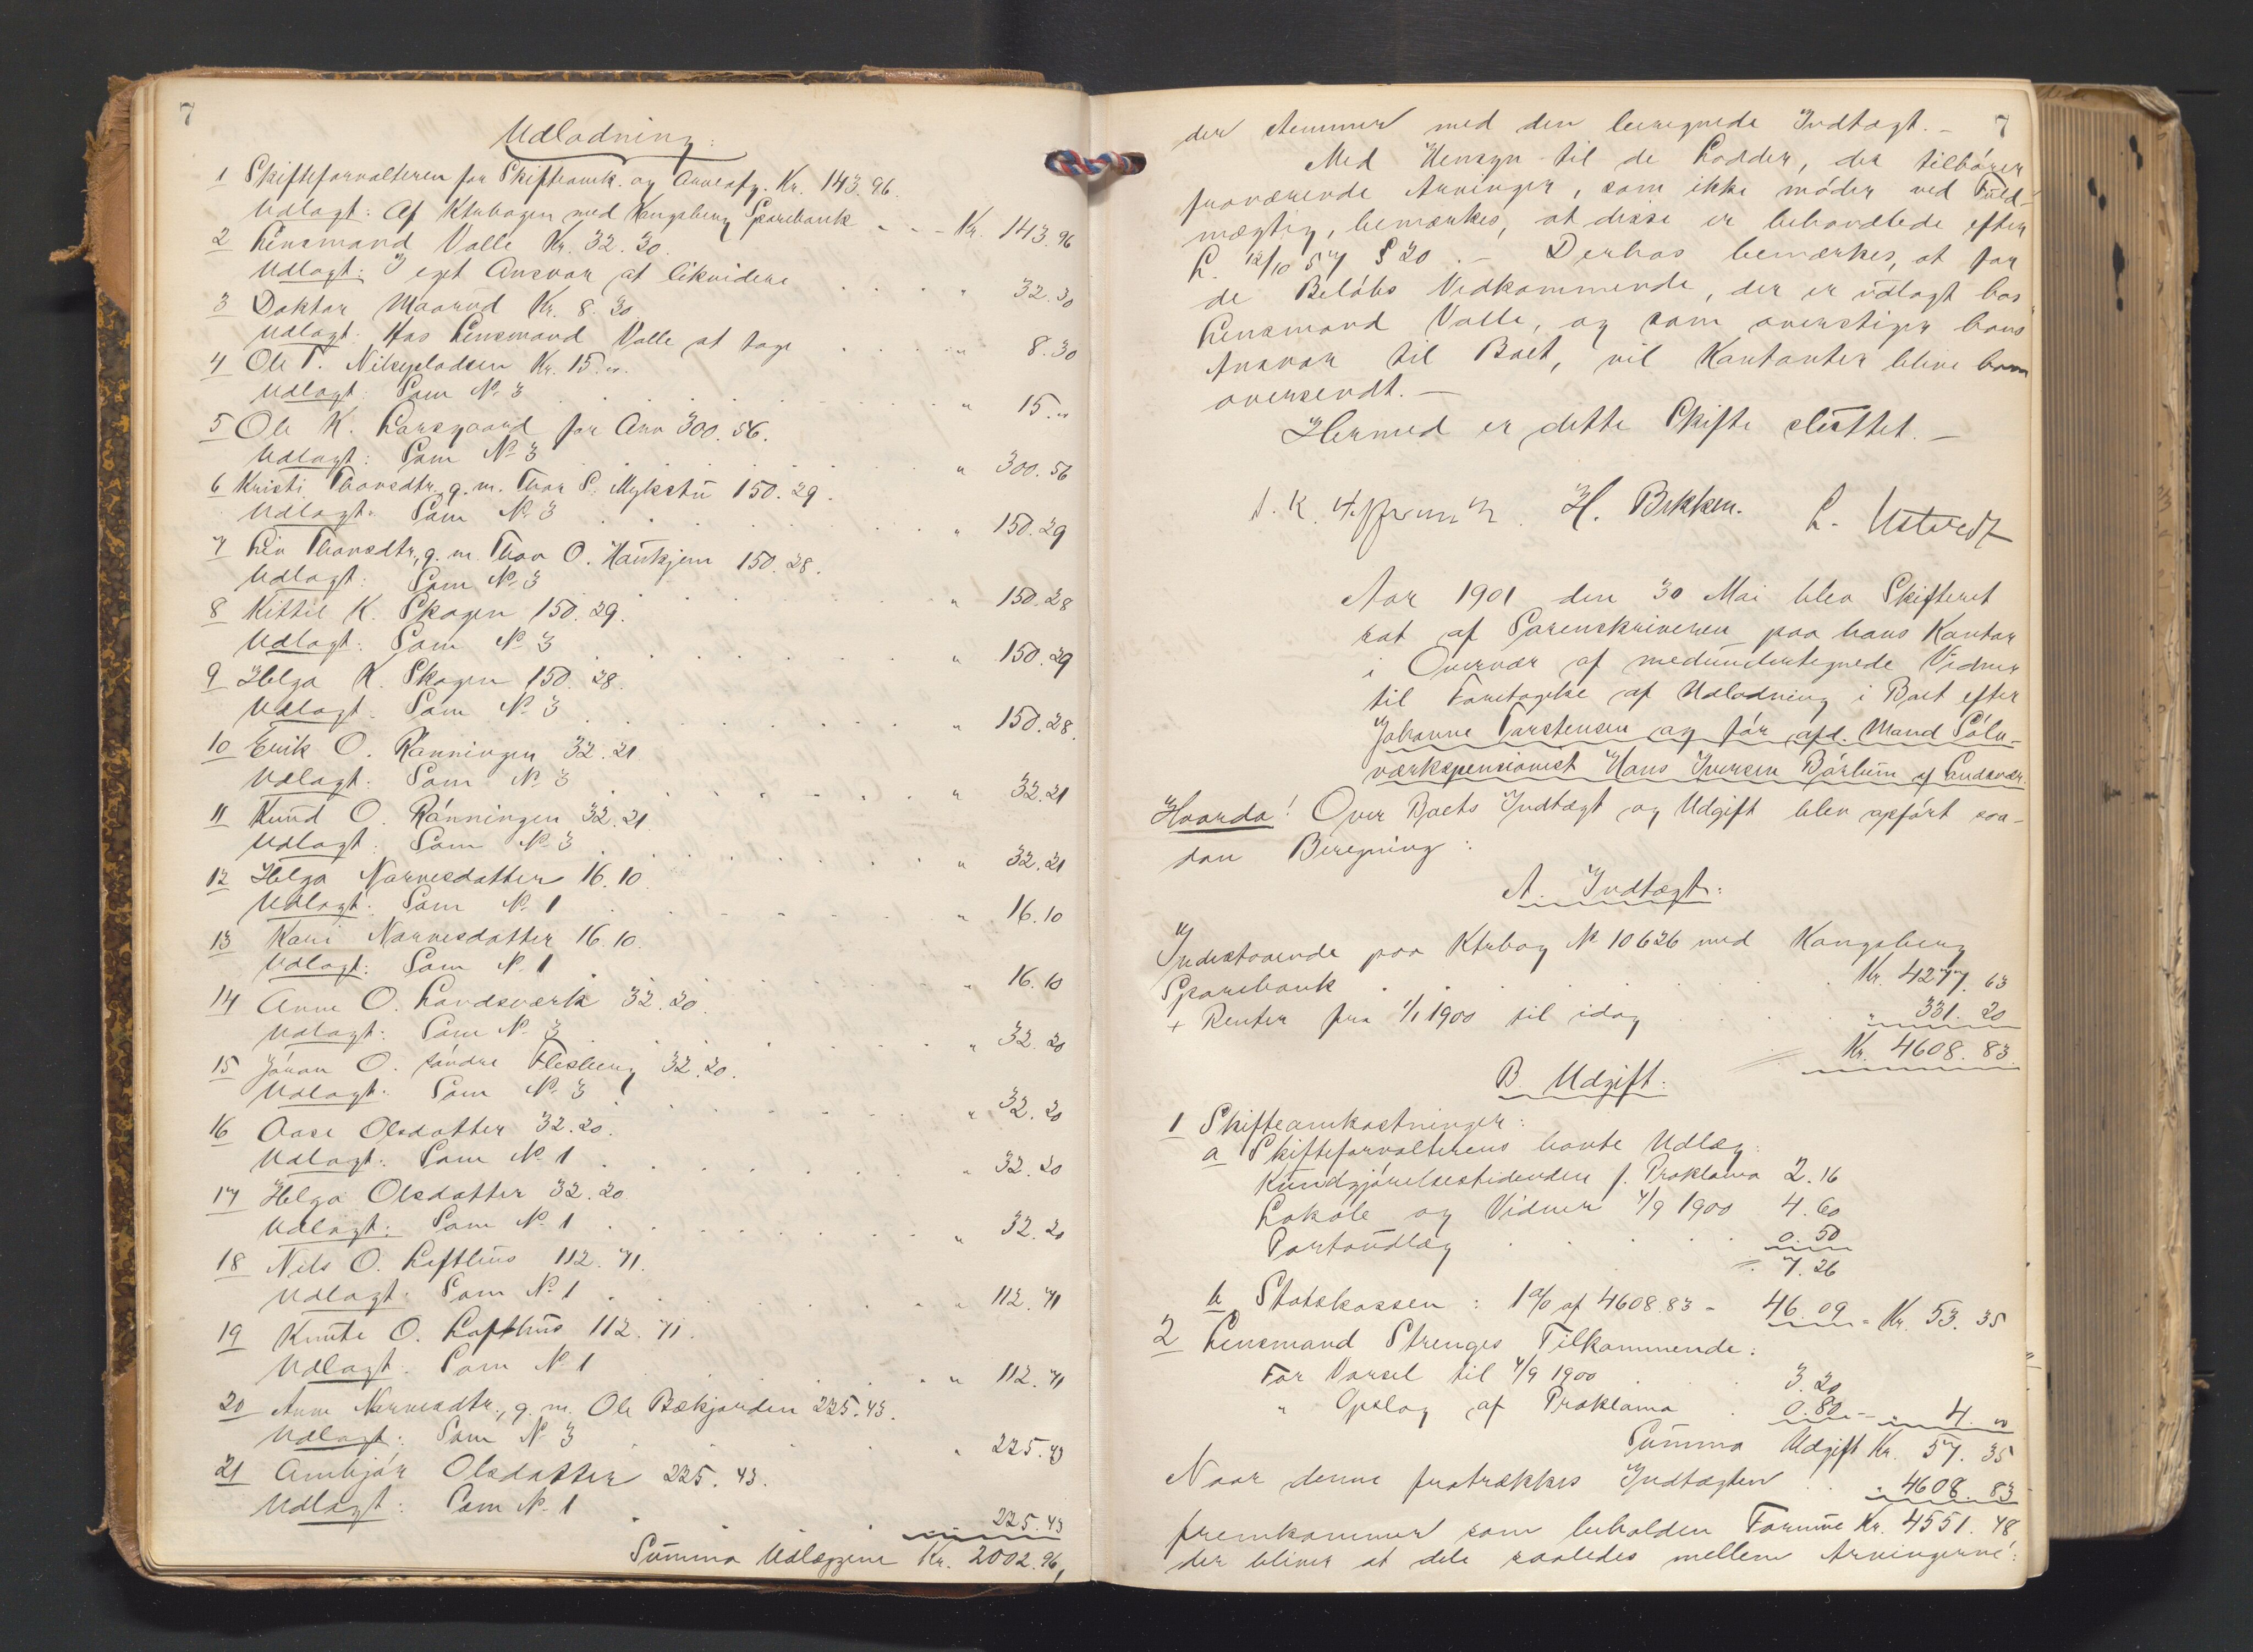 7
Udlodning:
1 Skifteforvalteren for Skifteomk. og Arveafg. Kr. 143.96.
Udlagt: Af Ktrbogen med Kongsberg Sparebank - - - Kr. 143.96
2 Lensmand Valle Kr. 32.30.
Udlagt: I eget Ansvar at likvidere . . . . " 32.30
3 Doktor Maarud Kr. 8.30
Udlagt: Hos Lensmand Valle at tage . . . . " 8.30
4 Ole T. Kr. 15."
Udlagt: Som No 3 . . . . " 15."
5 Ole K. Larsgaard for Arv 300.56.
Udlagt: Som No 3 . . . . " 300.56
6 Kristi Thorsdtr. g. m. Thor S. Mykstu 150.29.
Udlagt: Som No 3 . . . . " 150.29
7 Liv Thorsdtr., g. m. Thor O. Haukjem 150.28.
Udlagt: Som No 3 . . . . " 150.28
8 Kittil K. Skogen 150.29.
Udlagt: Som No 3 . . . . " 150.29
9 Helga K. Skogen 150.28.
Udlagt. Som No 3 . . . . " 150.28.
10 Erik O. Rønningen 32.21
Udlagt: Som No 3 . . . . " 32.21
11 Knud O. Rønningen 32.21
Udlagt: Som No 3 . . . . " 32.21
12 Helga Narvesdatter 16.10
Udlagt: Som No 1 . . . . " 16.10
13 Kari Narvesdatter 16.10.
Udlagt: Som No 1 . . . . " 16.10
14 Anne O. Landsværk 32.20.
Udlagt: Som No 3 . . . . " 32.20
15 Jøran O. søndre Flesberg 32.20.
Udlagt: Som No 3 . . . . " 32.20
16 Aase Olsdatter 32.20.
Udlagt: Som No 1 . . . . " 32.20
17 Helga Olsdatter 32.20
Udlagt: Som No 1 . . . . " 32.20
18 Nils O. Lofthus 112.71.
Udlagt: Som No 1 . . . . " 112.71
19 Knute O. Lofthus 112.71.
Udlagt. Som No 1 . . . . " 112.71
20 Anne Narvesdtr., g. m. Ole Bækjorden 225.43.
Udlagt: Som No 3 . . . . " 225.43
21 Ambjør Olsdatter 225.43.
Udlagt: Som No 1 . . . . 225.43
Summa Udlæggene Kr. 2002.96,
7
der stemmer med den beregnede Indtægt. -
Med Hensyn til de Lodder, der tilhører
fraværende Arvinger, som ikke møder ved Fuld-
mægtig, bemærkes, at disse er behandlede efter
L. 12/10 57 § 20. - Derhos bemærkes, at for
de Beløbs Vedkommende, der er udlagt hos
Lensmand Valle, og som overstiger hans
Ansvar til Boet, vil Kontanter blive ham
oversendt. -
Hermed er dette Skifte sluttet. -
H. Bekken. L. Ustvedt
Aar 1901 den 30 Mai blev Skifteret
sat af Sorenskriveren paa hans Kontor
i Overvær af medundertegnede Vidner
til Foretagelse af Udlodning i Boet efter
Johanne Torstensen og før afd. Mand Sølv-
værkspensionist Hans Iversen Børlum af Landsvær.
Hvorda! Over Boets Indtægt og Udgift blev opført saa-
dan Beregning:
A. Indtægt:
Indestaaende paa Ktrbog No 10626 med Kongsberg
Sparebank . . . . Kr. 4277.63
+ Renter fra 1/1 1900 til idag . . . . " 331.20
Kr. 4608.83
B. Udgift:
1 Skifteomkostninger:
a Skifteforvalterens havte Udlæg:
Kundgjørelsestidenden f. Proklama 2.16
Lokale og Vidner 4/9 1900 4.60
Portoudlæg . . . . 0.50
= 7.26
b Statskassen: 1% af 4608.83 - 46.09 = Kr. 53.35
2 Lensmand Strenges Tilkommende:
For Varsel til 4/9 1900 . . . . 3.20
" Opslag af Proklama . 0.80 - " 4."
Summa Udgift Kr. 57.35
Naar denne fratrækkes Indtægten . . " 4608.83
fremkommer som beholden Formue Kr. 4551.48
der bliver at dele saaledes mellem Arvingerne: